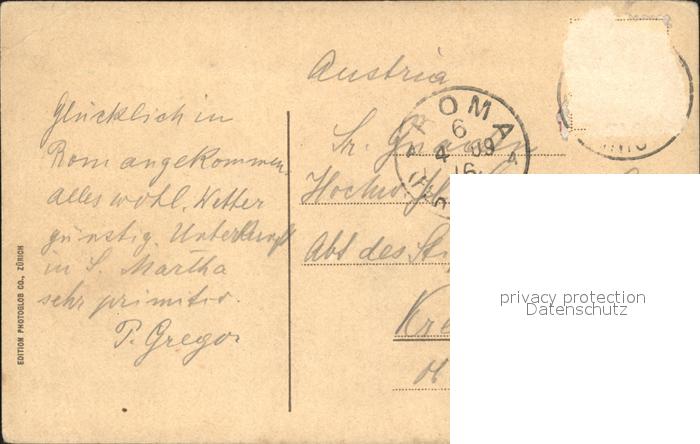 Austria
Glücklich in
Rom angekommen.
alles wohl. Wetter
günstig. Unterkunft
in S. Martha
sehr primitiv.
P. Gregor
ROMA
6
4 09
16
Sr. Gnaden
Hochw.
Abt des
Kre
EDITION PHOTOGLOB CO., ZÜRICH
privacy protection
Datenschutz